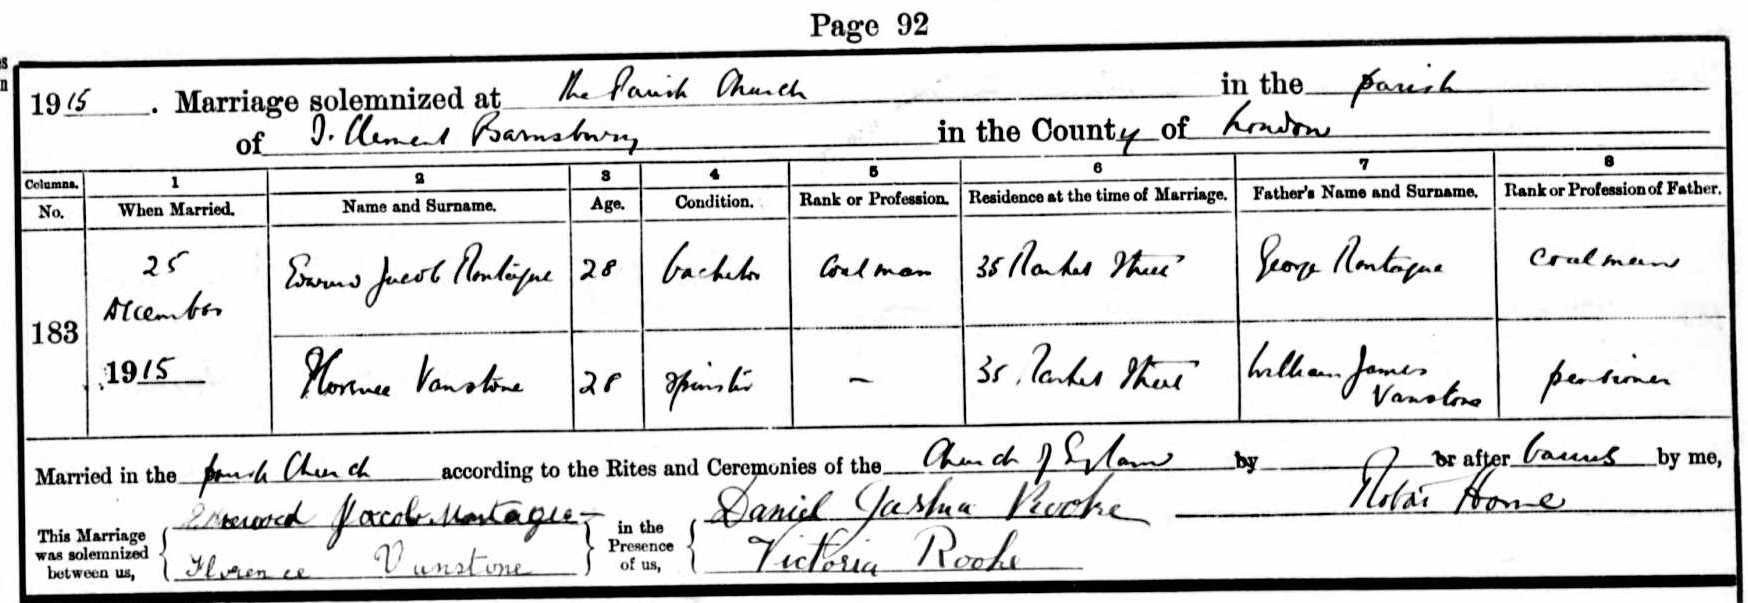 Page 92
1915. Marriage solemnized at the Parish Church in the parish
of S. Clement Barnsbury in the County of London
Columns. 1 2 3 4 5 6 7 8
No. When Married. Name and Surname. Age. Condition. Rank or Profession. Residence at the time of Marriage. Father's Name and Surname. Rank or Profession of Father.
183
25 December 1915
Edward Jacob Montague 28 bachelor Coalman 35 Market Street George Montague Coalman
Florence Vanstone 28 Spinster — 35 Market Street William James Vanstone pensioner
Married in the parish Church according to the Rites and Ceremonies of the Church of England by or after banns by me,
Home
This Marriage was solemnized between us, { Edward Jacob Montague } in the Presence of us, { Daniel Jashua Rooke
Florence Vanstone Victoria Rooke